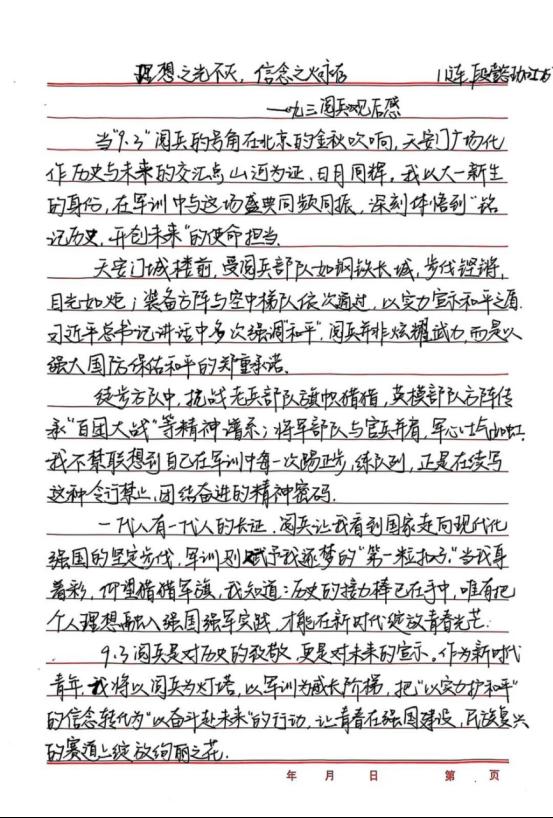 理想之光不灭，信念之火永存
11连 段懿
一九三阅兵观后感
当"9.3"阅兵的号角在北京的金秋吹响，天安门广场化
作历史与未来的交汇点山河为证、日月同辉，我以大一新生
的身份，在军训中与这场盛典同频同振，深刻体悟到"铭
记历史，开创未来"的使命担当.
天安门城楼前，受阅兵部队如钢铁长城，步伐铿锵，
目光如炬；装备方阵与空中梯队依次通过，以实力宣示和平之盾.
习近平总书记讲话中多次强调"和平"，阅兵并非炫耀武力，而是以
强大国防保佑和平的郑重承诺.
徒步方队中，抗战老兵部队旗帜猎猎，英模部队方阵传
承"百团大战"等精神谱系；将军部队与官兵并肩，军心士气如虹.
我不禁联想到自己在军训中每一次踢正步，练队列，正是在续写
这种令行禁止、团结奋进的精神密码.
一代人有一代人的长征.阅兵让我看到国家走向现代化
强国的坚定步伐，军训则赋予我逐梦的"第一粒扣子."当我身
着彩，仰望猎猎军旗，我知道：历史的接力棒已在手中，唯有把
个人理想融入强国强军实践，才能在新时代绽放青春光芒.
9.3阅兵是对历史的致敬，更是对未来的宣示。作为新时代
青年，我将以阅兵为灯塔，以军训为成长阶梯，把"以实力护和平"
的信念转化为"以奋斗赴未来"的行动，让青春在强国建设，民族复兴
的赛道上绽放绚丽之花.
年 月 日 第 页